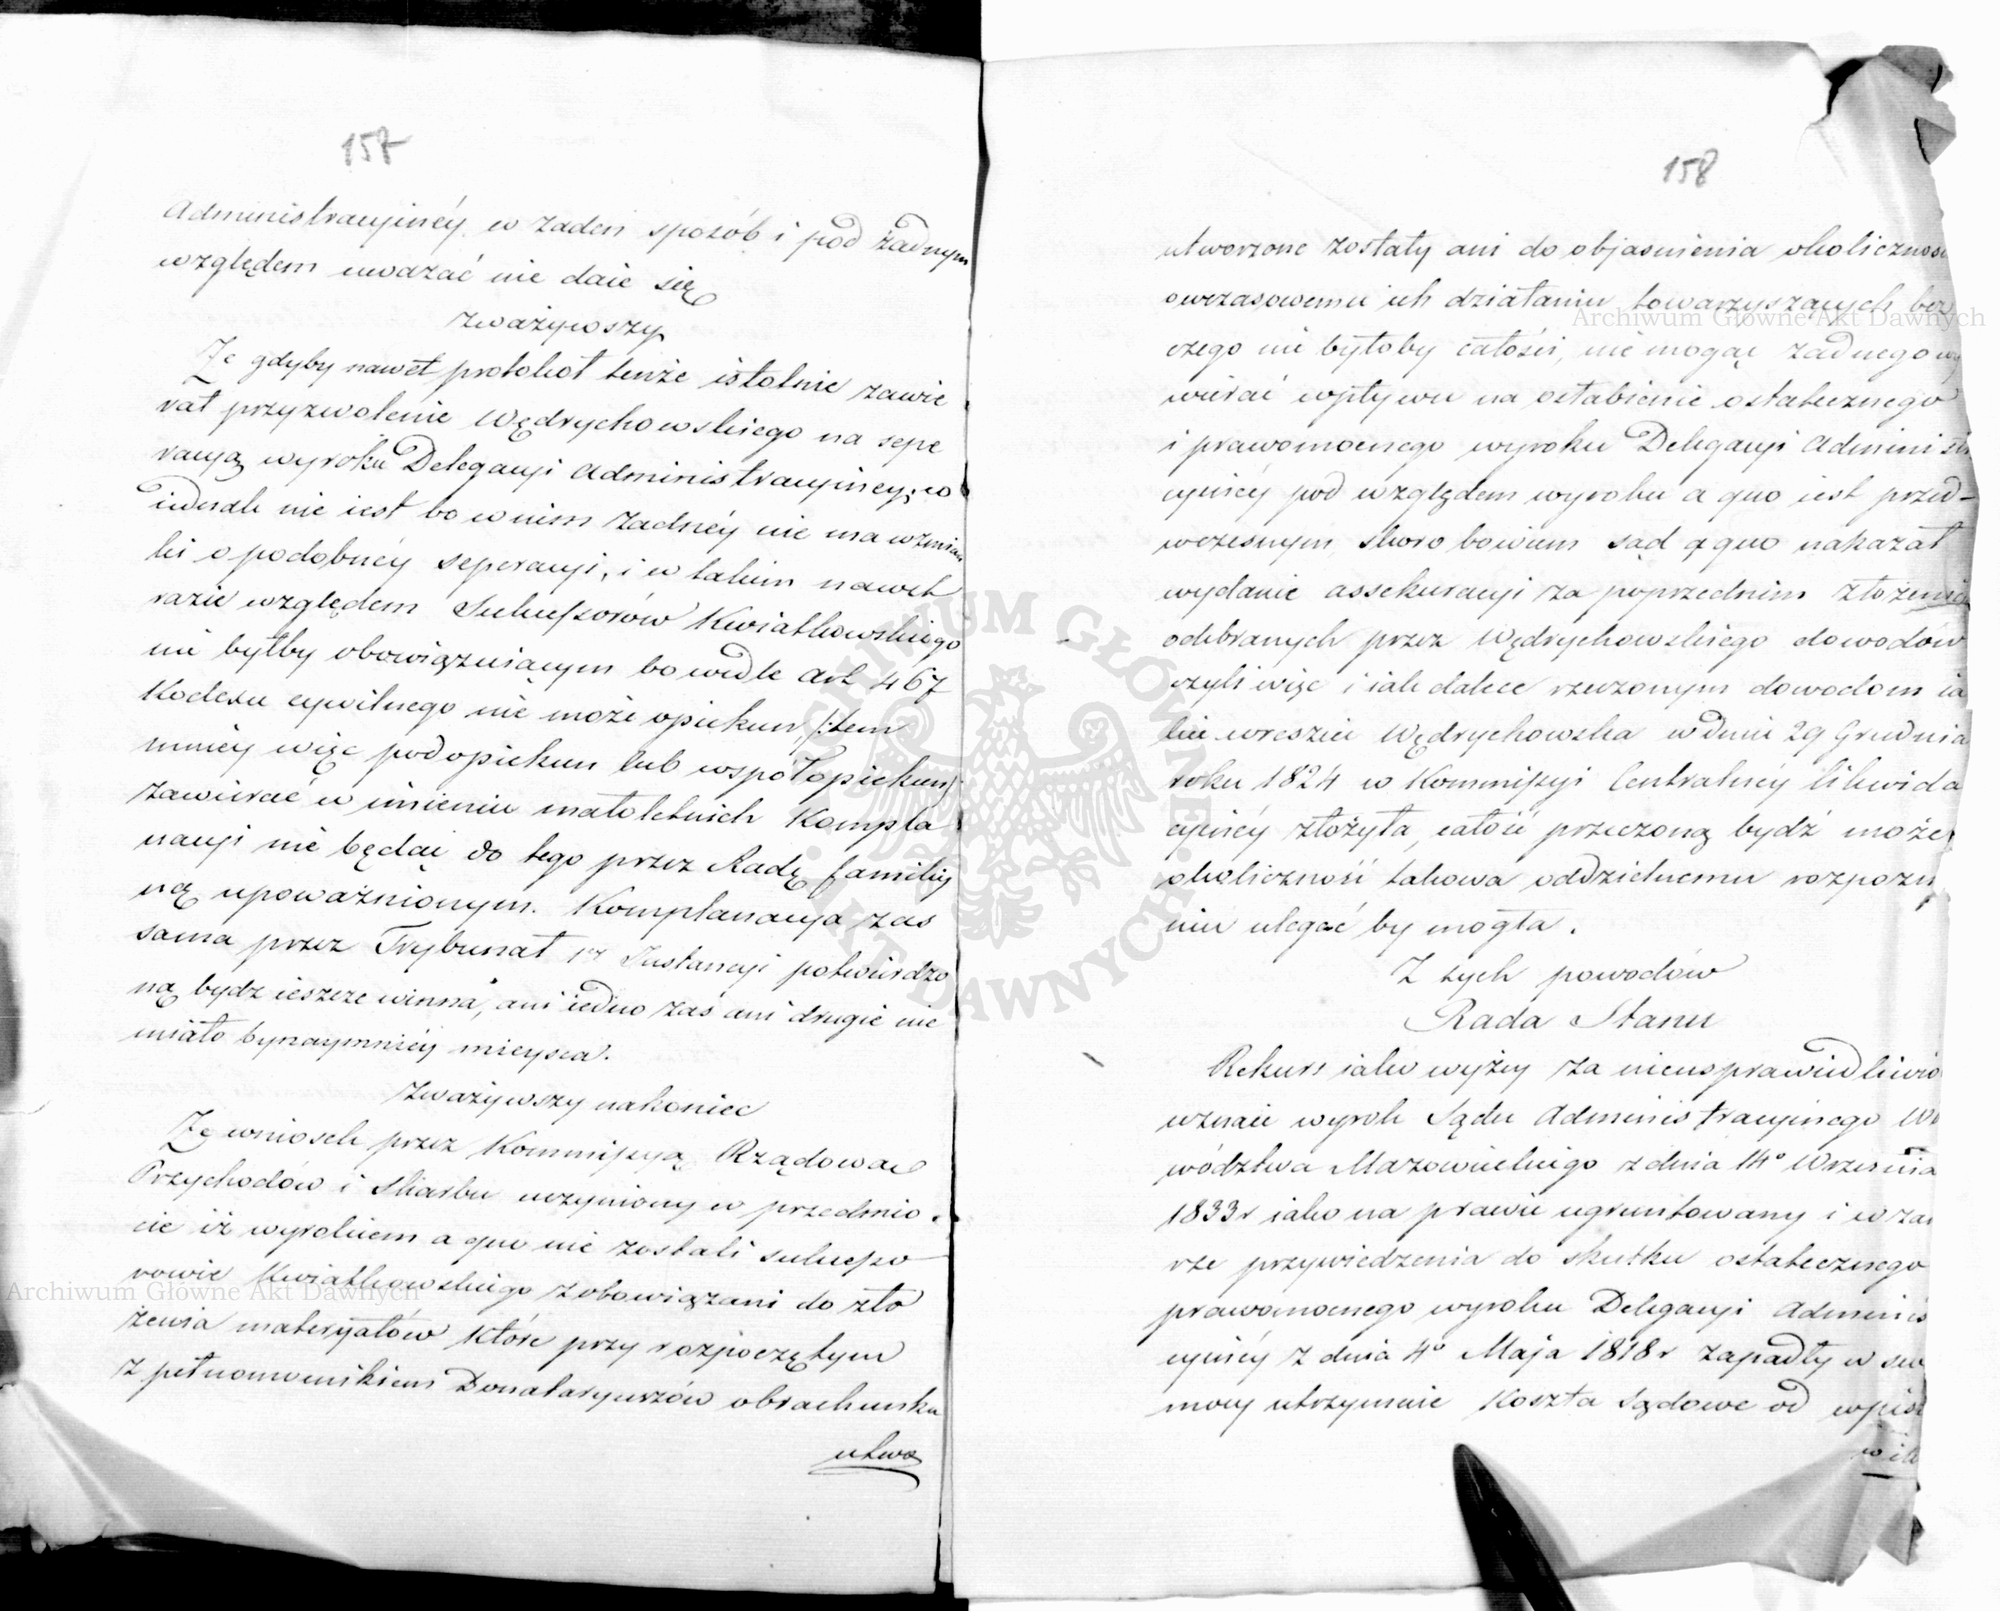 157
Administracyinéy w żaden sposób i pod żadnym
względem uważać nie daie się
Zważywszy
Że gdyby nawet protokół tenże istotnie zawie
rał przyzwolenie Wędrychowskiego na sepe
racyą wyroku Delegacyi Administracyiney, co
iednak nie iest bo w nim żadnéy nie ma wzmian
ki o podobnéy seperacyi, i w takim nawet
razie względem Sukcessorów Kwiatkowskiego
nie byłby obowiązuiącym bo wedle Art 467
Kodexu cywilnego nie może opiekun /:tem
mniéy więc podopiekun lub współopiekun:/
zawierać w imieniu małoletnich Kompla
nacyi nie będąc do tego przez Radę familiy
ną upoważnionym. Komplanacya zaś
sama przez Trybunał 1éy Instancyi potwierdzo
ną bydź ieszcze winna, ani iedno zaś ani drugie nie
miało bynaymniéy mieysca.
Zważywszy nakoniec
Że wniosek przez Kommissyą Rządową
Przychodów i Skarbu uczyniony w przedmio
cie iż wyrokiem a quo nie zostali sukcesso
rowie Kwiatkowskiego zobowiązani do zło
żenia materyałów które przy rozpoczętym
z pełnomocnikiem Donataryuszów obrachunku
utwo
158
utworzone zostały ani do objasnienia okolicznosci
owczasowemu ich działaniu towarzyszących bez
czego nie byłoby całości, nie mogąc żadnego wy
wierać wpływu na osłabienie ostatecznego
i prawomocnego wyroku Delegacyi Administra
cyinéy pod względem wyroku a quo iest przed-
wczesnym skoro bowiem sąd a quo nakazał
wydanie assekuracyi za poprzednim złożeniem
odebranych przez Wędrychowskiego dowodów
czyli więc i iak dalece rzeczonym dowodom ia
kie wreszcie Wędrychowska w dniu 29 Grudnia
roku 1824 w Kommissyi Centralnéy Likwida
cyinéy złożyła, całość przeczoną bydź może,
okoliczność takowa oddzielnemu rozpozna
niu ulegać by mogła.
Z tych powodów
Rada Stanu
Rekurs iako wyżéy za nieusprawiedliwio
uznaie wyrok Sądu Administracyinego Wo
wództwa Mazowieckiego z dnia 14º Września
1833 r iako na prawie ugruntowany i w za
rze przywiedzenia do skutku ostatecznego
prawomocnego wyroku Delegacyi Adminis
cyinéy z dnia 4º Maja 1818 r zapadły w swe
mocy utrzymuie Koszta Sądowe od wpisu
Archiwum Główne Akt Dawnych
Archiwum Główne Akt Dawnych
ARCHIWUM GŁÓWNE AKT DAWNYCH